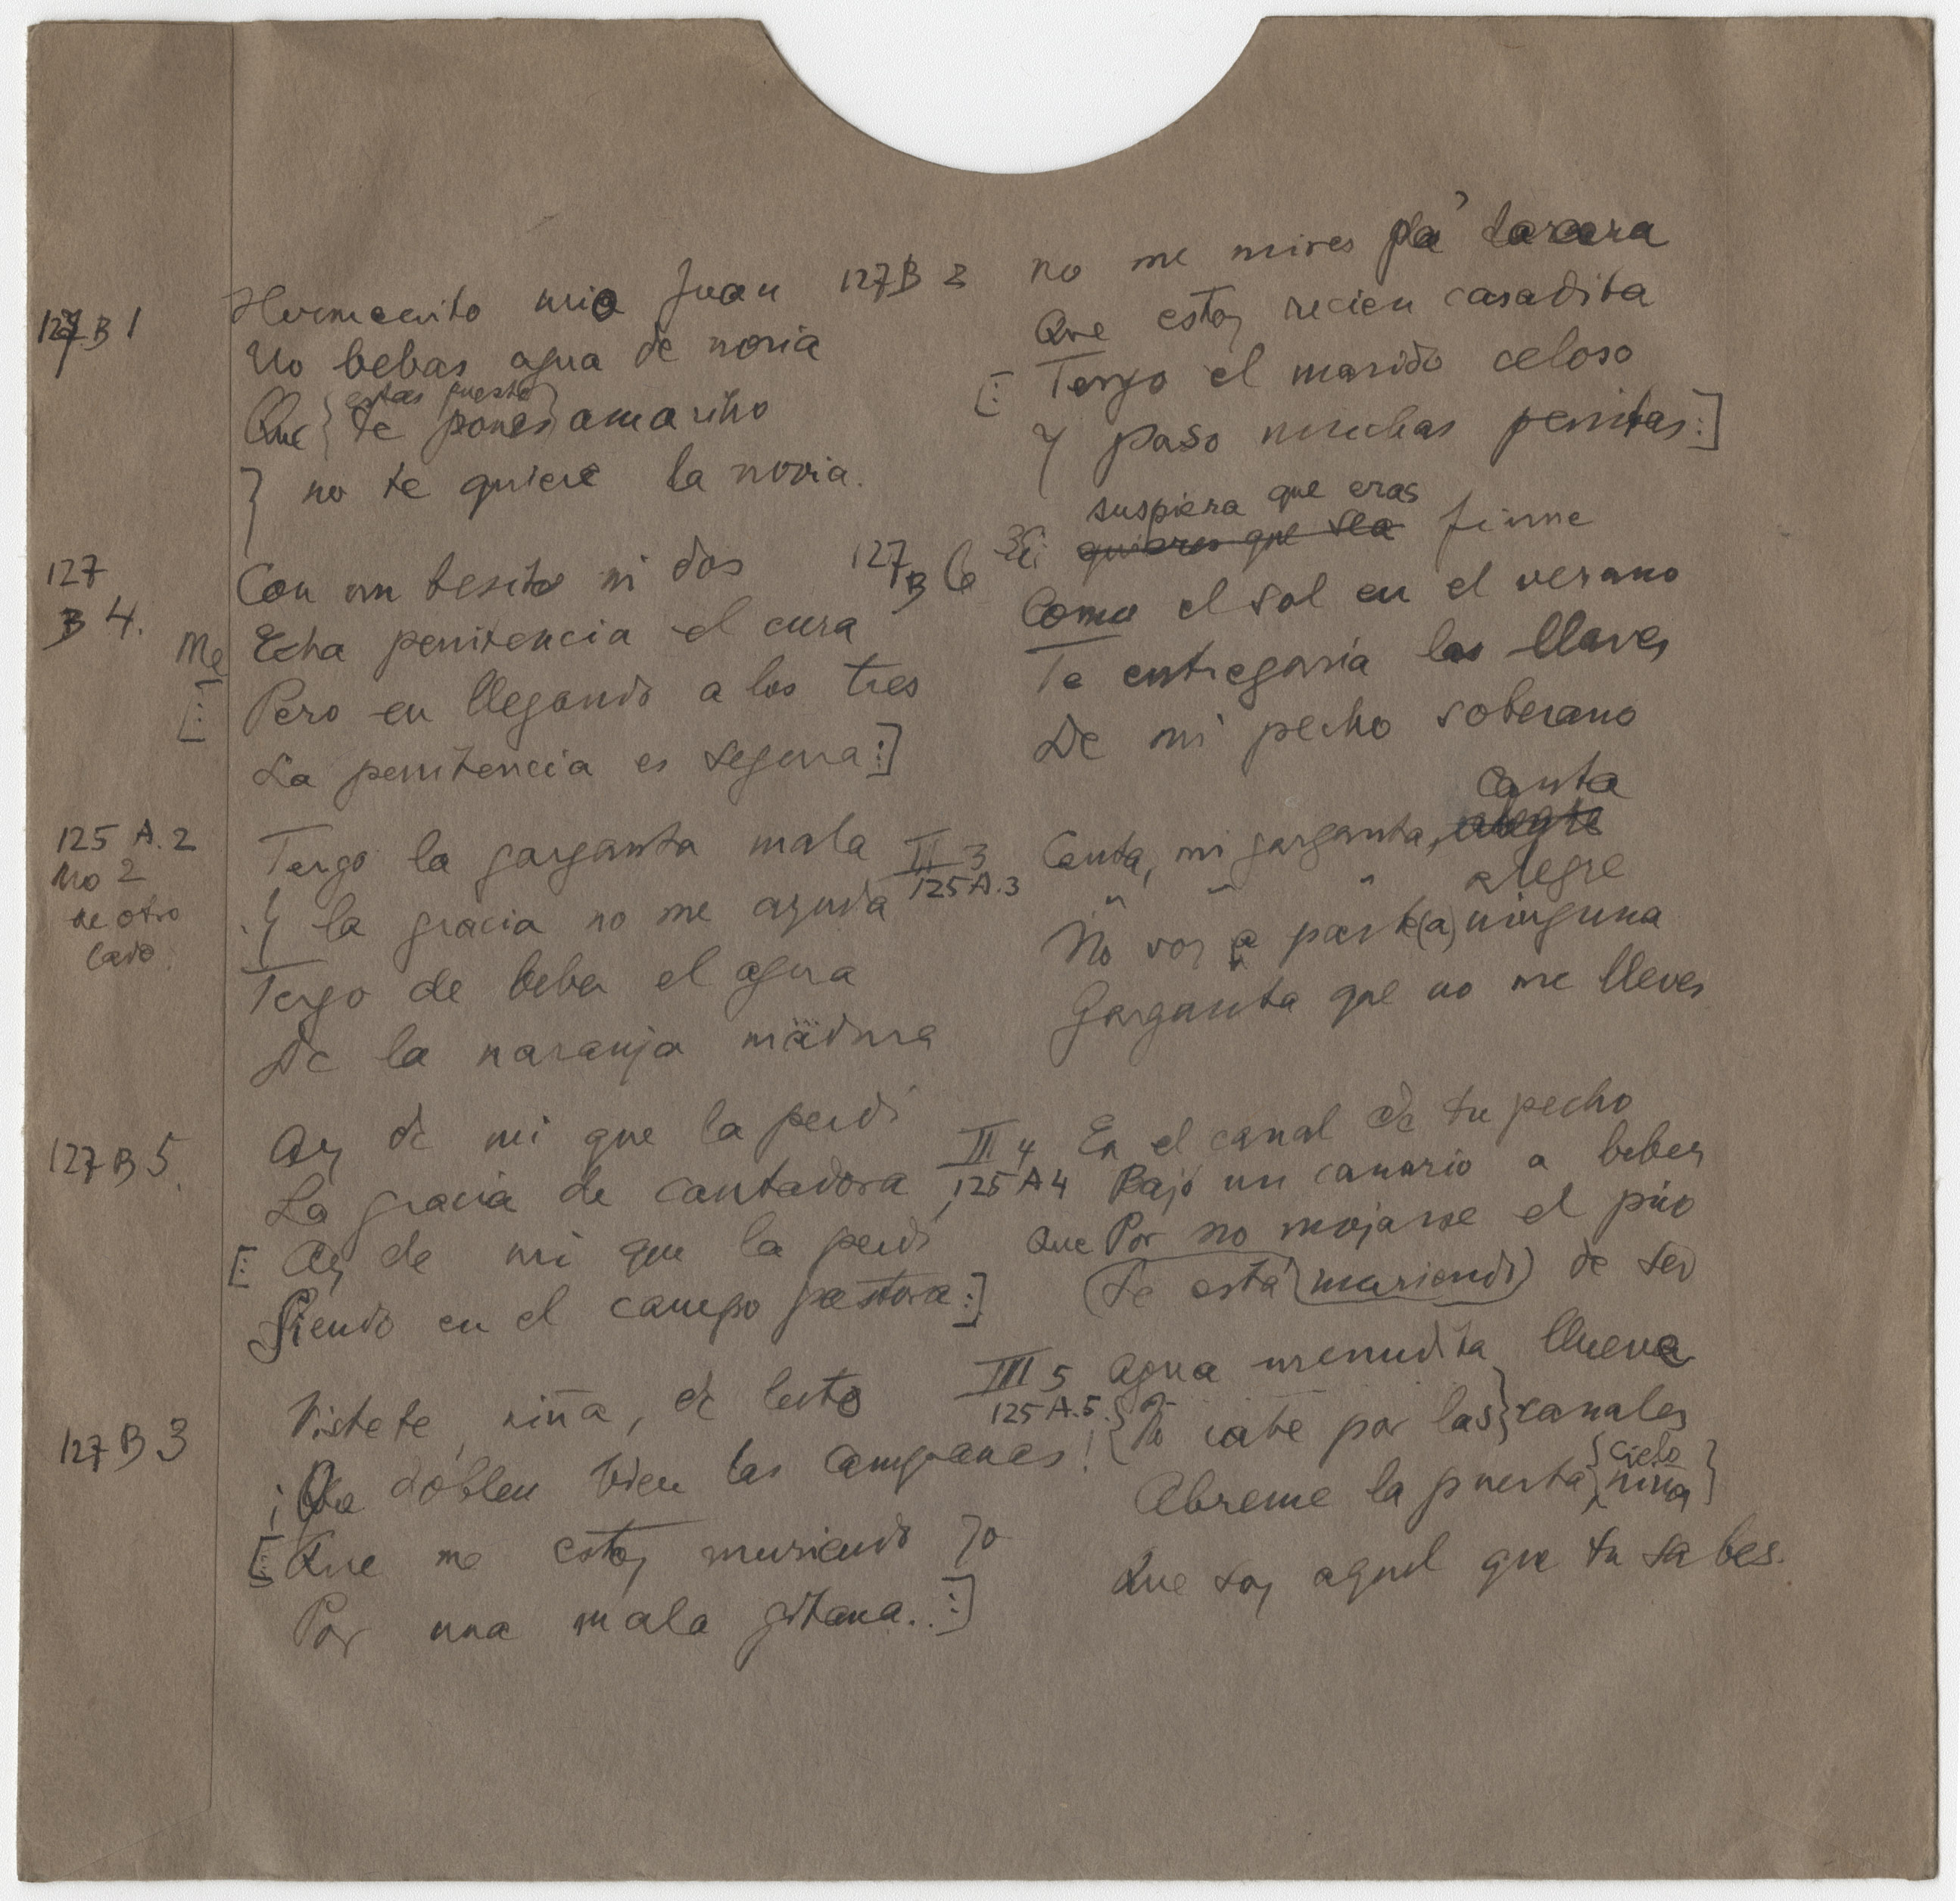 127 B 1
Hermanito mio Juan
No bebas agua de noria
estas puesto
Que { te pones } amarillo
} no te quiere la novia.
127 B 2
no me mires pa' la cara
Que estoy recien casadita
[: Tengo el marido celoso
Y paso muchas penitas :]
127 B 4.
Con un besito ni dos
Me Echa penitencia el cura
[: Pero en llegando a los tres
La penitencia es segura :]
127 B 6
suspiera que eras
Si quieres que sea firme
Como el sol en el verano
Te entregaria las llaves
De mi pecho soberano
125 A.2
No 2
de otro
lado.
Tengo la garganta mala
Y la gracia no me ayuda
Tengo de beber el agua
De la naranja madura
II 3
125 A.3
canta
Canta, mi garganta, alegre
" " " alegre
No voy a parte(a) ninguna
Garganta que no me lleves
127 B 5.
Ay de mi que la perdi
La gracia de cantadora
[: Ay de mi que la perdi
Siendo en el campo pastora :]
II 4
125 A 4
En el canal de tu pecho
Bajó un canario a beber
Que Por no mojarse el pico
(Se está (muriendo) de sed
127 B 3
Vistete, niña, de luto
¡Que doblen bien las campanas!
[: Que me estoy muriendo yo
Por una mala gitana. :]
III 5
125 A.5.
Agua menudita llueve
cabe por las } canales
{ cielo
Abreme la puerta, niña }
Que soy aquel que tu sabes.